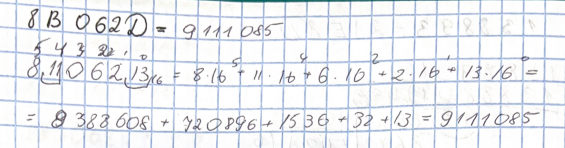 8B062D = 9111085
5 4 3 2 1 0
8,11062,13₁₆ = 8·16⁵ + 11·16⁴ + 6·16² + 2·16¹ + 13·16⁰ =
= 8388608 + 720896 + 1536 + 32 + 13 = 9111085